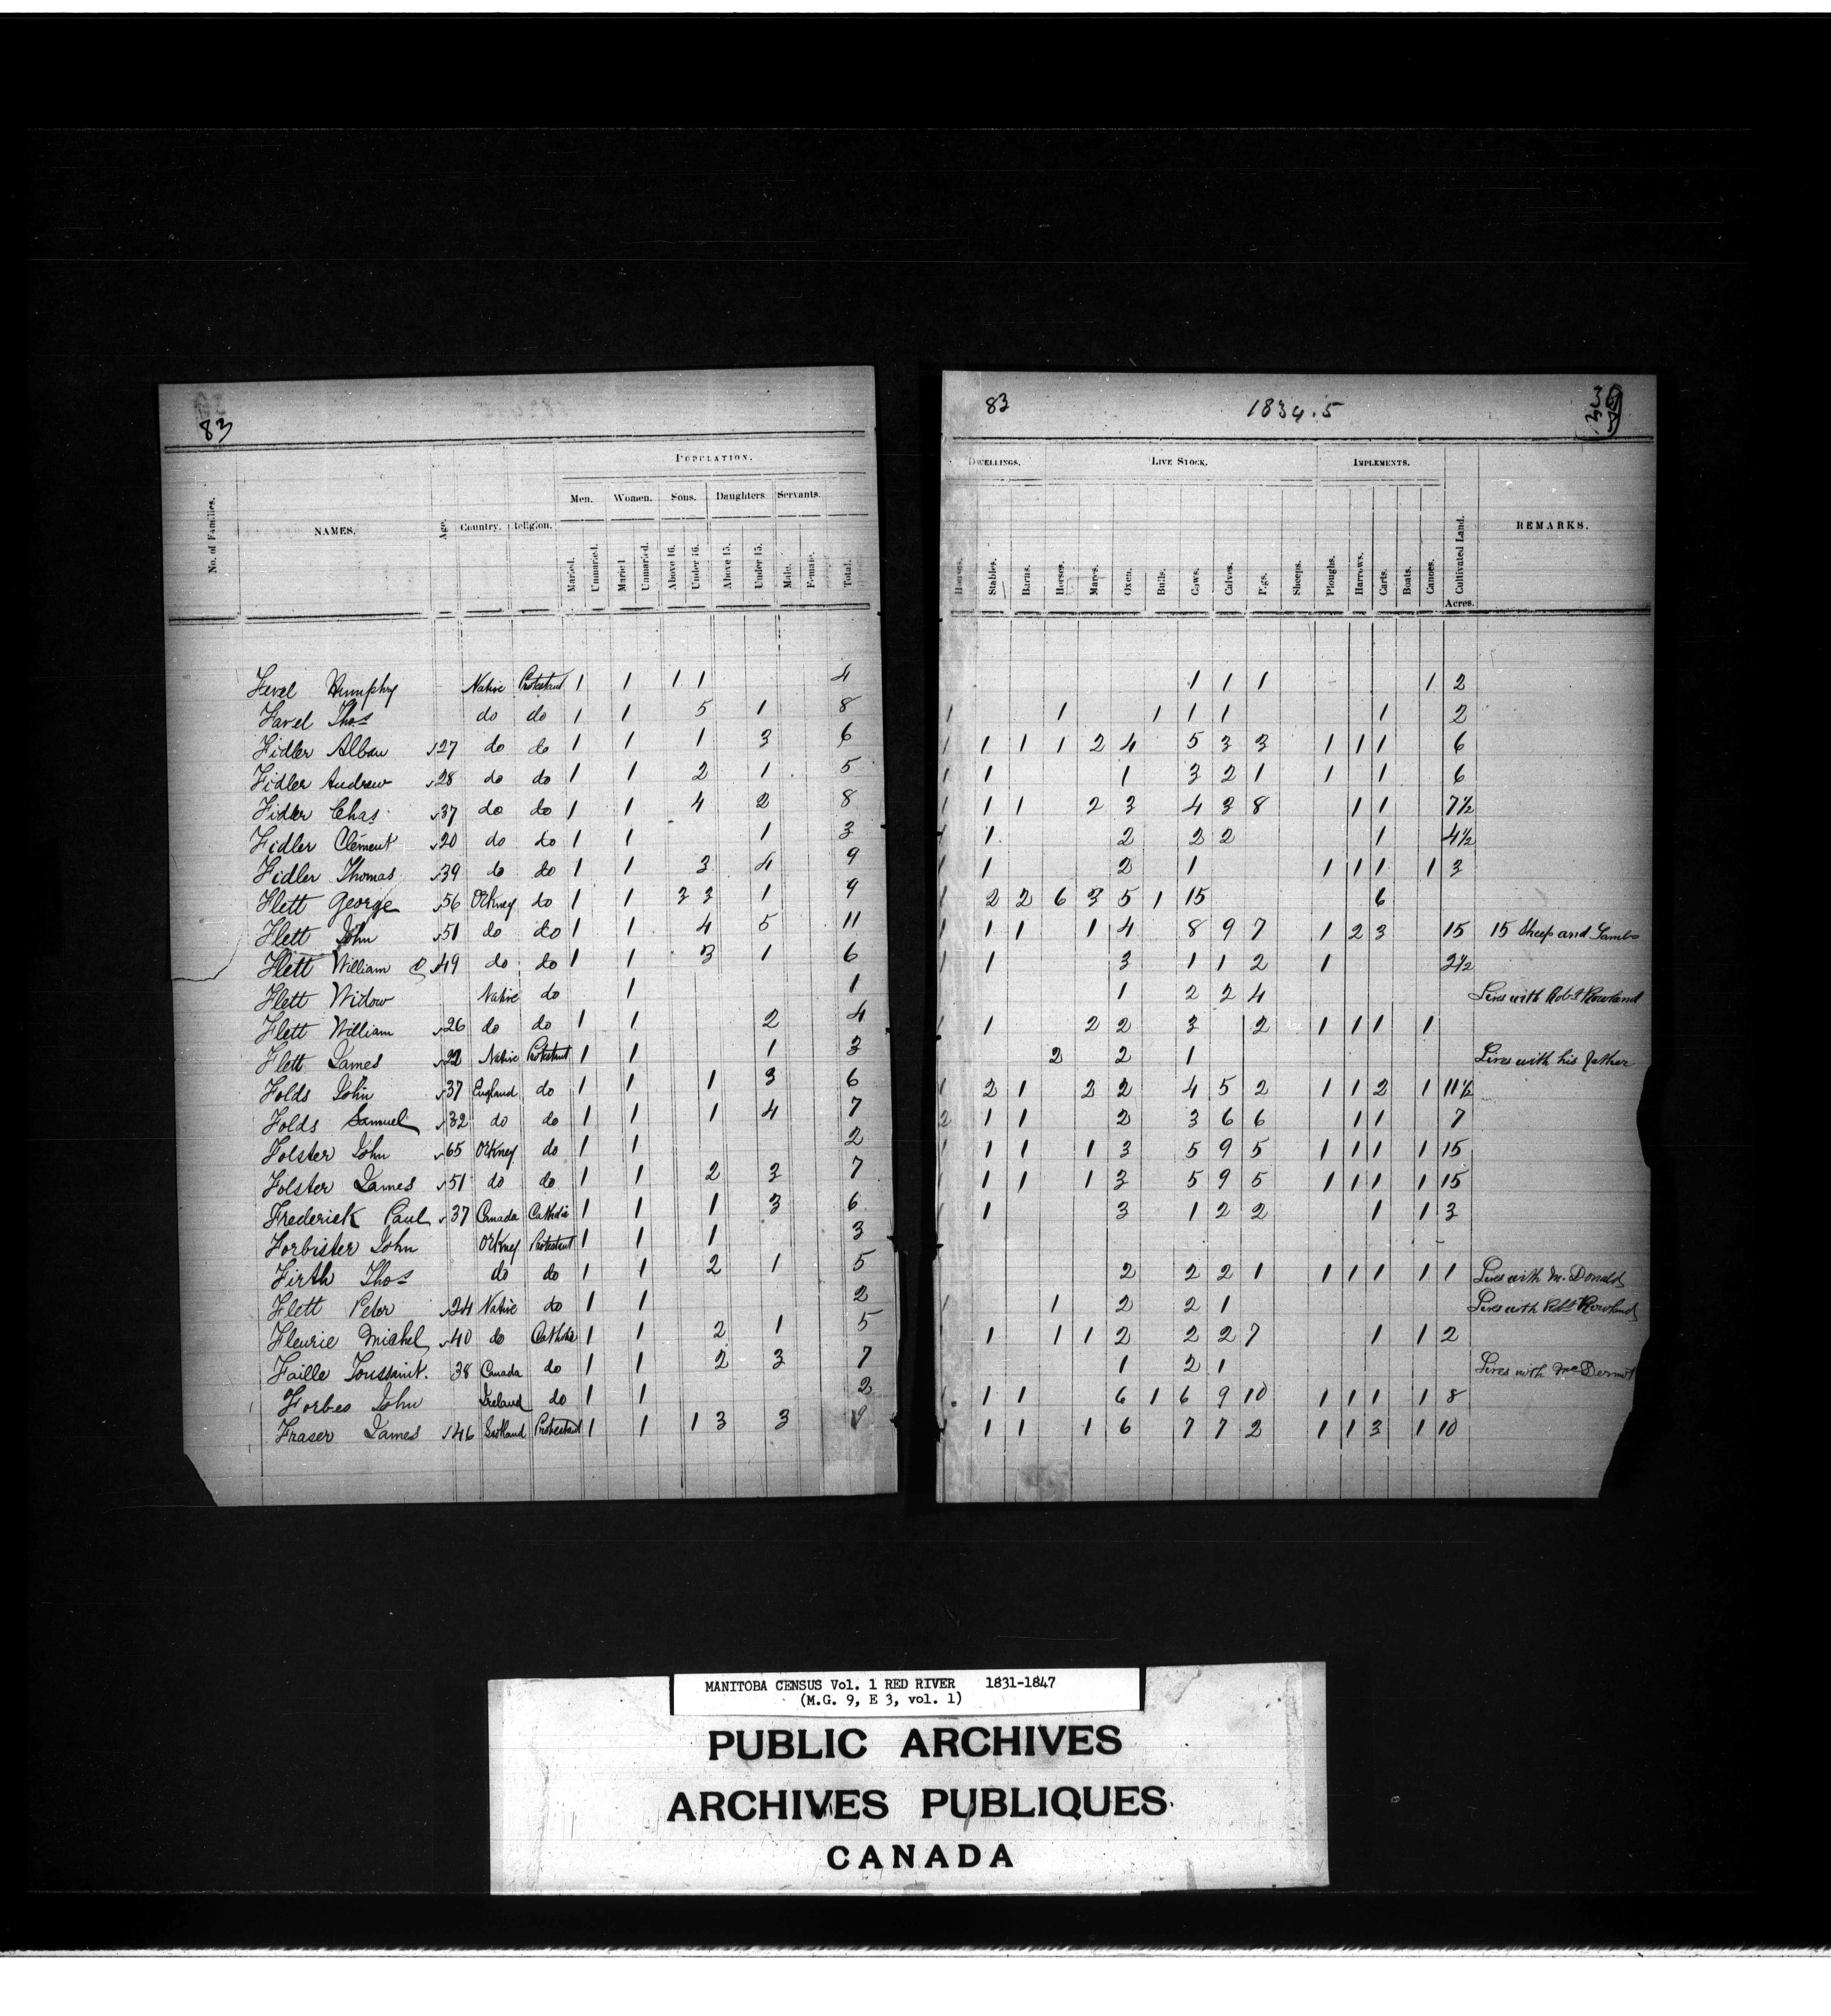 83
POPULATION.
Men. Women. Sons. Daughters Servants.
No. of Families. NAMES. Age. Country. Religion. Married. Unmarried. Married Unmarried. Above 16. Under 16. Above 15. Under 15. Male. Female. Total.
Favel Humphry Native Protestant 1 1 1 1 4
Favel Thos do do 1 1 5 1 8
Fidler Alban 27 do do 1 1 1 3 6
Fidler Andrew 28 do do 1 1 2 1 5
Fidler Chas 37 do do 1 1 4 2 8
Fidler Clement 20 do do 1 1 1 3
Fidler Thomas 39 do do 1 1 3 4 9
Flett George 56 Orkney do 1 1 3 3 1 9
Flett John 51 do do 1 1 4 5 11
Flett William 49 do do 1 1 3 1 6
Flett Widow Native do 1 1
Flett William 26 do do 1 1 2 4
Flett James 22 Native Protestant 1 1 1 3
Folds John 37 England do 1 1 1 3 6
Folds Samuel 32 do do 1 1 1 4 7
Folster John 65 Orkney do 1 1 2
Folster James 51 do do 1 1 2 3 7
Frederick Paul 37 Canada Catholic 1 1 1 3 6
Forbister John Orkney Protestant 1 1 1 3
Firth Thos do do 1 1 2 1 5
Flett Peter 24 Native do 1 1 2
Fleurie Michel 40 do Catholic 1 1 2 1 5
Faille Toussaint. 38 Canada do 1 1 2 3 7
Forbes John Ireland do 1 1 2
Fraser James 46 Scotland Protestant 1 1 1 3 3 9
83 1834.5
DWELLINGS. LIVE STOCK. IMPLEMENTS.
Houses. Stables. Barns. Horses. Mares. Oxen. Bulls. Cows. Calves. Pigs. Sheeps. Ploughs. Harrows. Carts. Boats. Canoes. Cultivated Land. REMARKS.
Acres.
1 1 1 1 2
1 1 1 1 1 1 2
1 1 1 1 2 4 5 3 3 1 1 1 6
1 1 1 3 2 1 1 1 6
1 1 1 2 3 4 3 8 1 1 7½
1 1 2 2 2 1 4½
1 1 2 1 1 1 1 1 3
1 2 2 6 3 5 1 15 6
1 1 1 1 4 8 9 7 1 2 3 15 15 Sheep and Lambs
1 1 3 1 1 2 1 2½
1 2 2 4 Lives with Robt Rowland
1 1 2 2 3 2 1 1 1 1
2 2 1 Lives with his father
1 2 1 2 2 4 5 2 1 1 2 1 11½
2 1 1 2 3 6 6 1 1 7
1 1 1 1 3 5 9 5 1 1 1 1 15
1 1 1 1 3 5 9 5 1 1 1 1 15
1 1 3 1 2 2 1 1 3
2 2 2 1 1 1 1 1 1 Lives with M. Donald
1 1 2 2 1 Lives with Robt Rowland
1 1 1 2 2 2 7 1 1 2
1 2 1 Lives with McDermot
1 1 6 1 6 9 10 1 1 1 1 8
1 1 1 1 6 7 7 2 1 1 3 1 10
MANITOBA CENSUS Vol. 1 RED RIVER 1831-1847
(M.G. 9, E 3, vol. 1)
PUBLIC ARCHIVES
ARCHIVES PUBLIQUES
CANADA